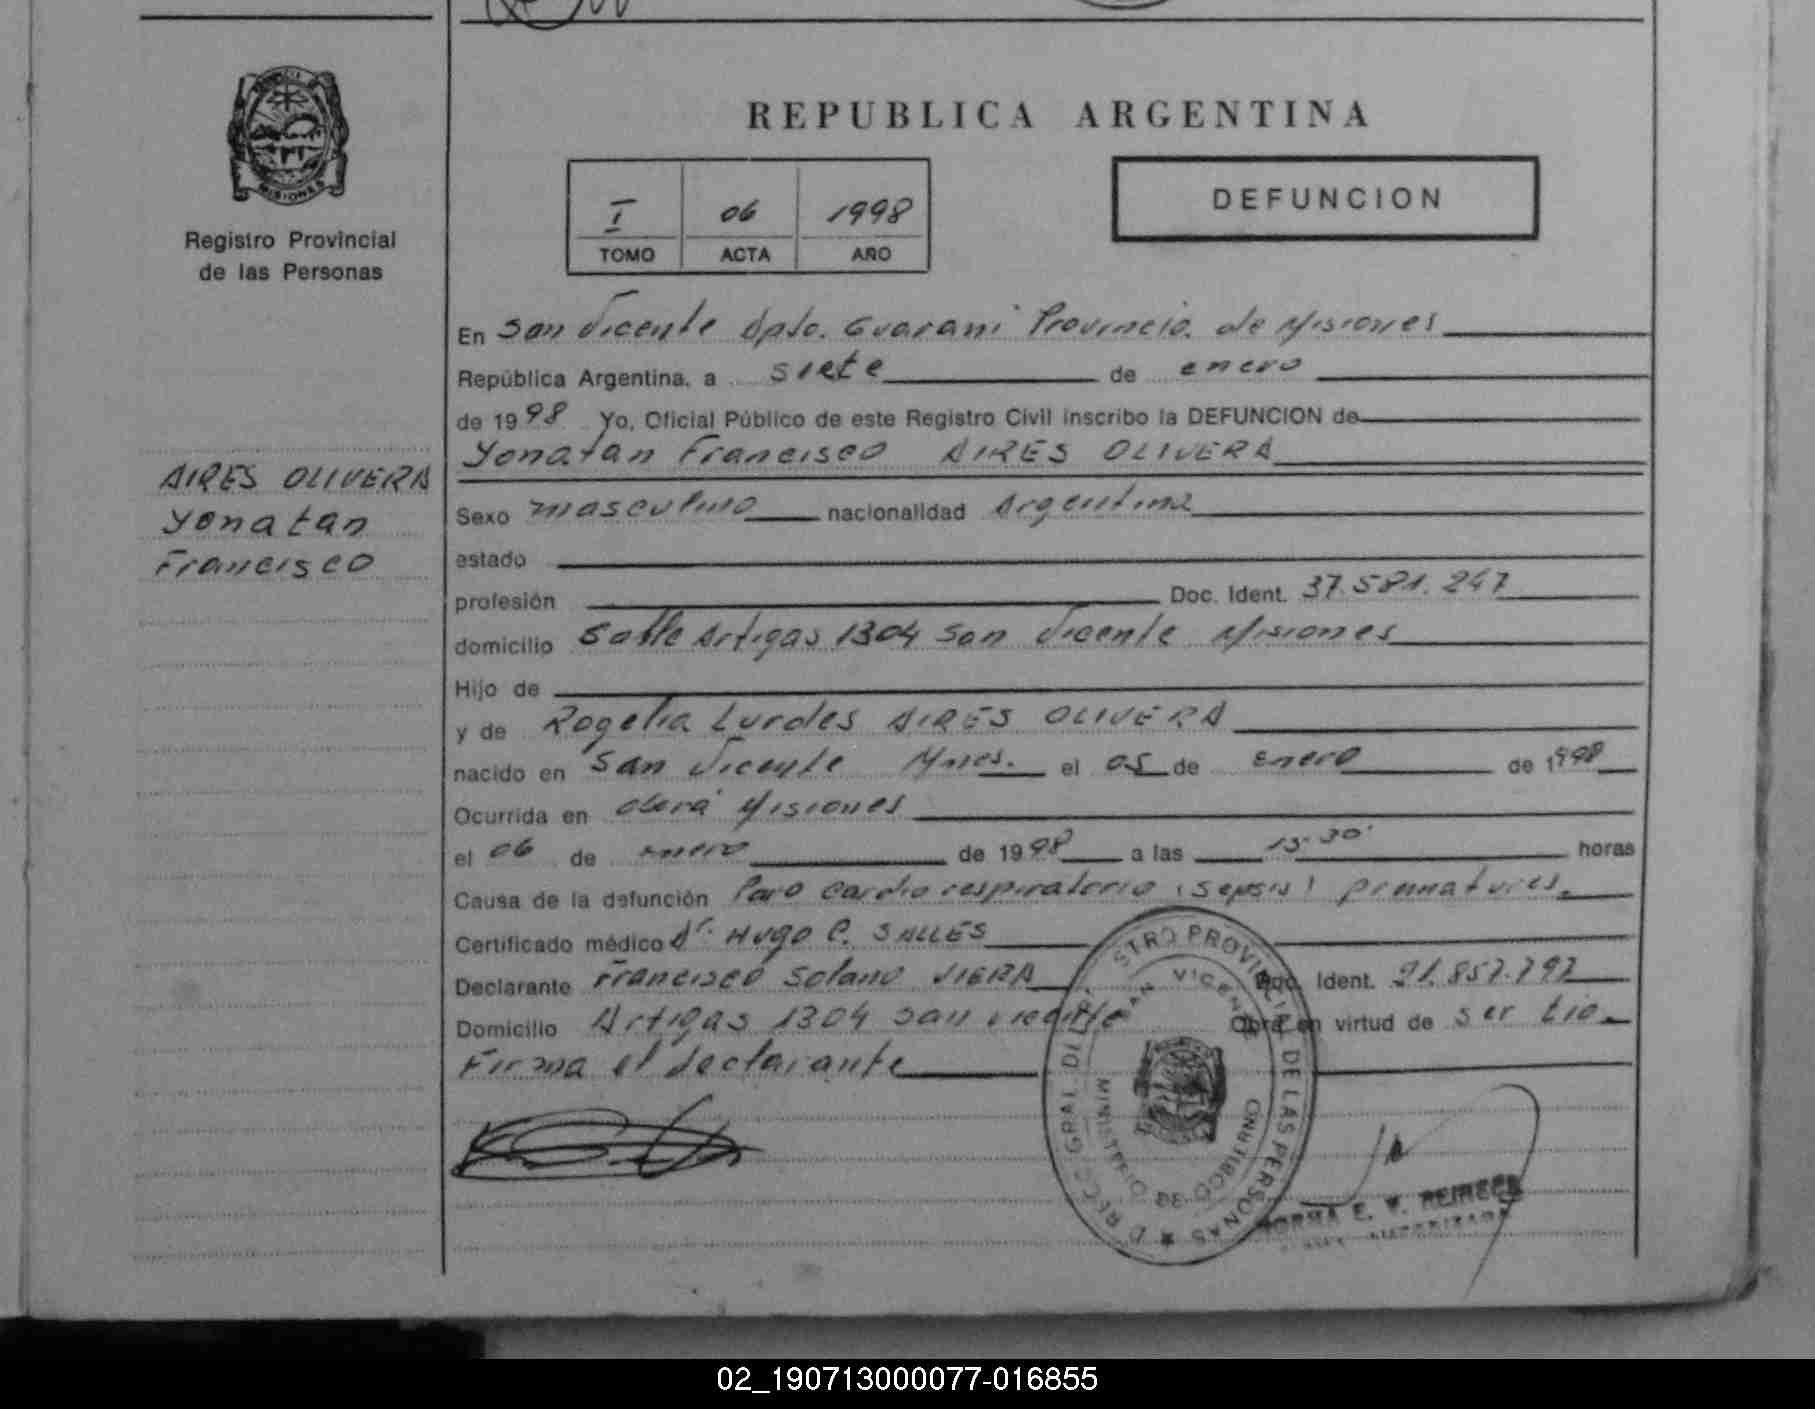 MISIONES
Registro Provincial
de las Personas
REPUBLICA ARGENTINA
I 06 1998
TOMO ACTA AÑO
DEFUNCION
En San Vicente Dpto. Guarani Provincia de Misiones
República Argentina, a siete de enero
de 1998 Yo, Oficial Público de este Registro Civil inscribo la DEFUNCION de
Yonatan Francisco AIRES OLIVERA
AIRES OLIVERA
Yonatan
Francisco
Sexo masculino nacionalidad Argentina
estado
profesión Doc. Ident. 37.581.247
domicilio Calle Artigas 1304 San Vicente Misiones
Hijo de
y de Rogelia Lurdes AIRES OLIVERA
nacido en San Vicente Mnes. el 05 de enero de 1998
Ocurrida en Oberá Misiones
el 06 de enero de 1998 a las 15.30 horas
Causa de la defunción Paro cardio respiratorio (sepsis)
Certificado médico Dr. HUGO C. SALLES
Declarante Francisco Solano VIERA Doc. Ident.
Domicilio Artigas 1304 San Vicente Obra en virtud de ser tio
Firma el declarante
DIRECC. GRAL. DEL REGISTRO PROVINCIAL DE LAS PERSONAS
SAN VICENTE
MINISTERIO DE GOBIERNO
NORMA E.
02_190713000077-016855